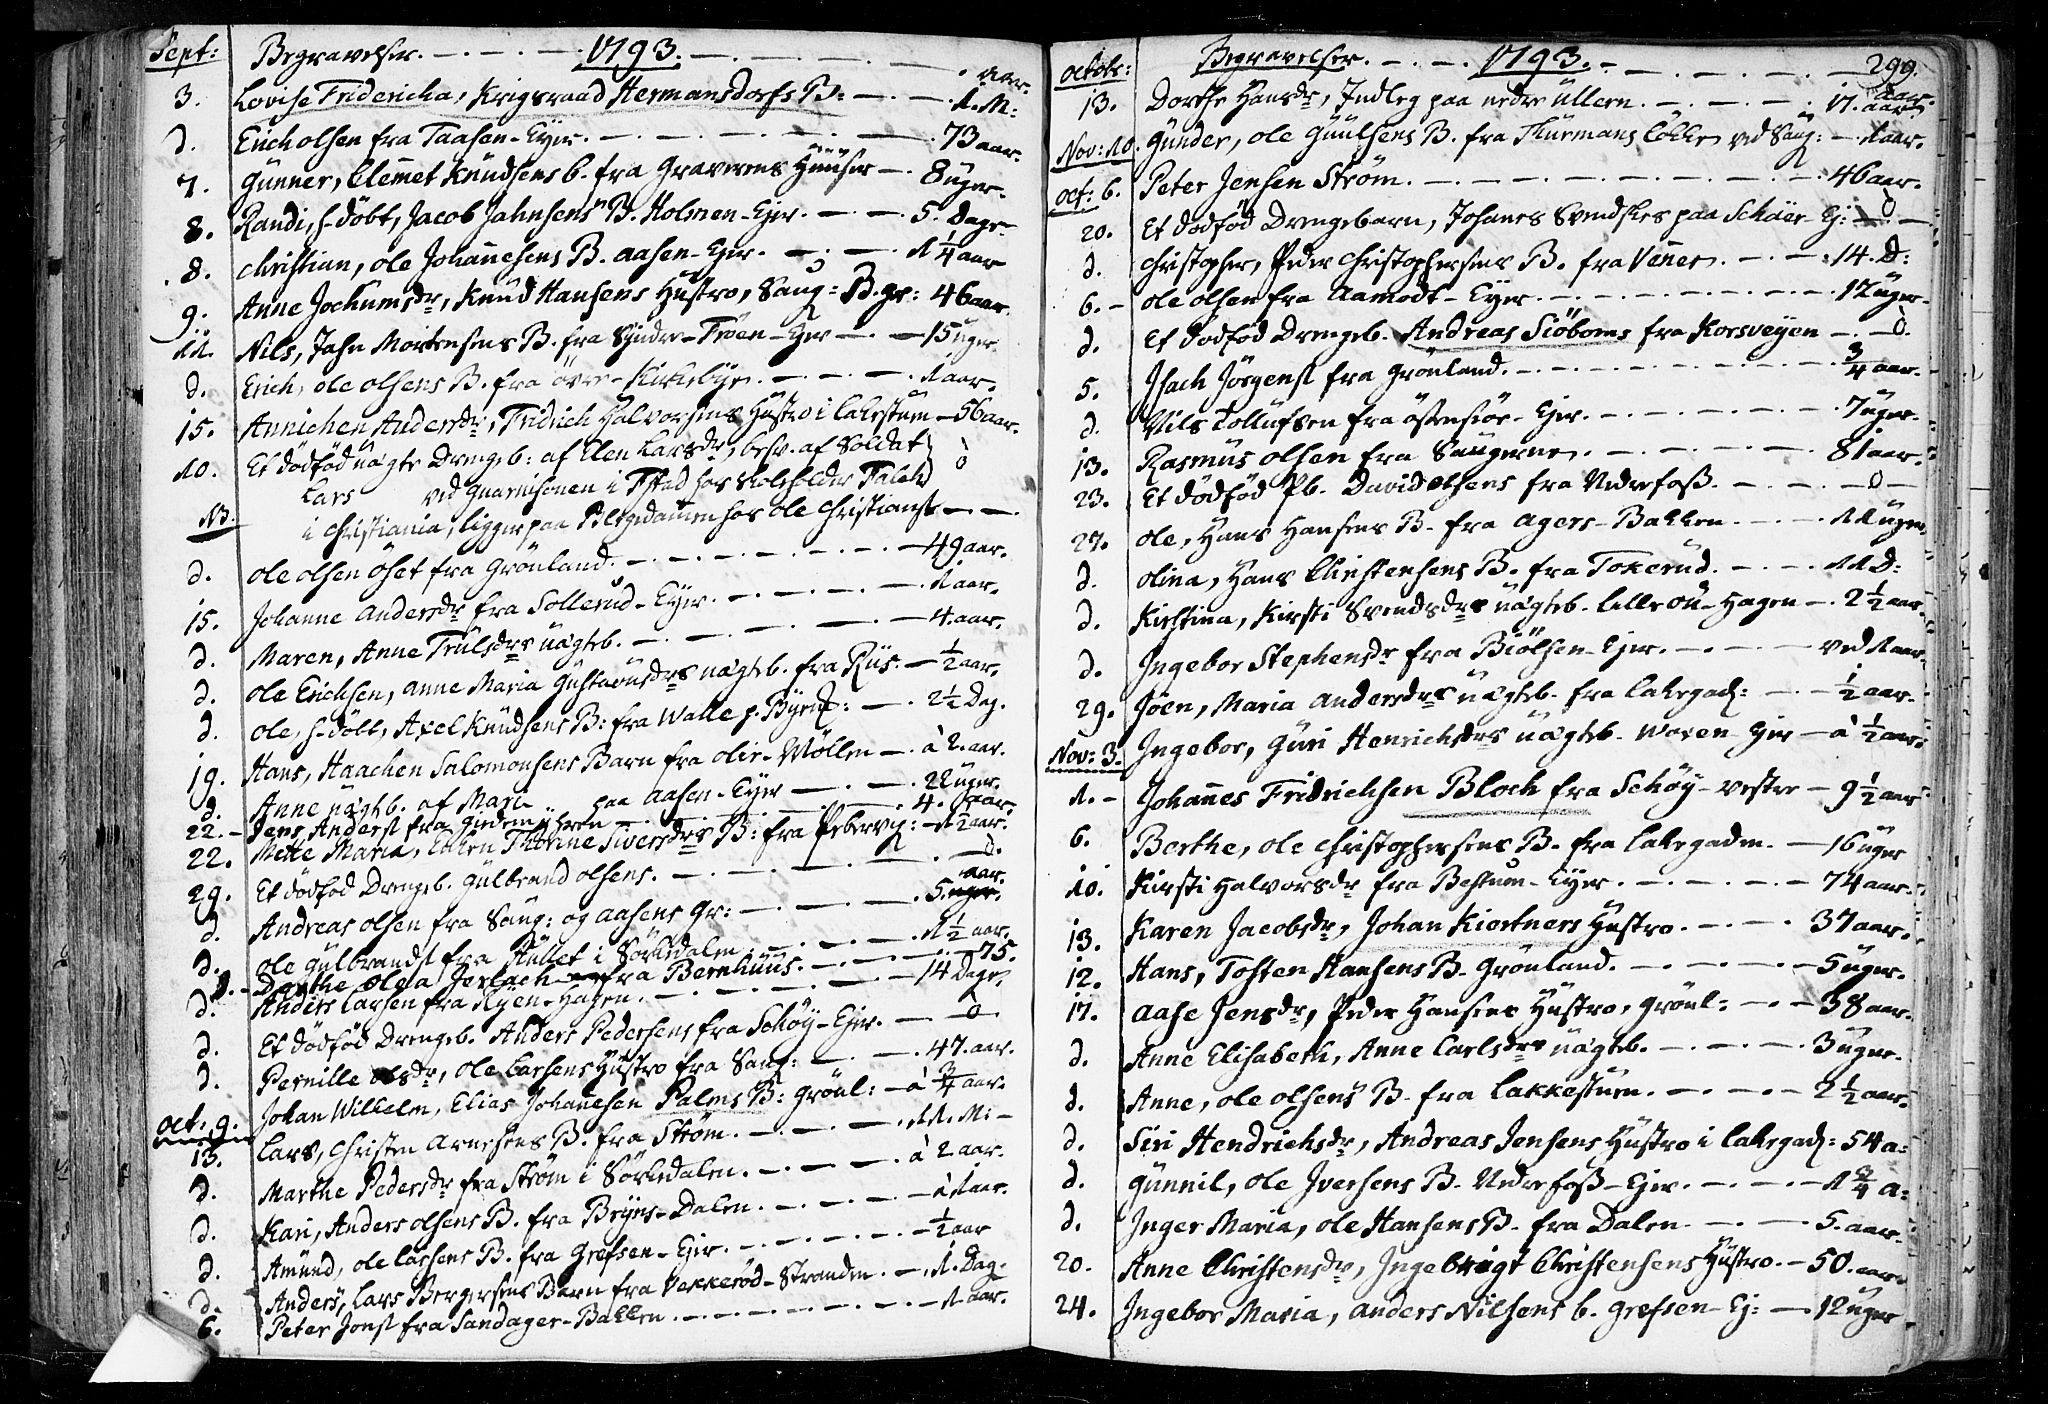 Sept: Begravelser. 1793.
aar.
3. Lovise Fridericha, Krigsraad Hermansdorfs B: 1. M:
d. Erich olsen fra Taasen-Ejer. 73 aar.
7. Gunner, Clemet Knudsens b. fra Graverens Huuser 8 uger.
8. Randi, h-döbt, Jacob Jahnsens B. Holmen-Ejer. 5. Dage
8. Christian, ole Johannesens B. aasen-Ejer. 1 1/4 aar
9. Anne Jochumsdr, Knud Hansens Hustro, Saug: B.gr: 46 aar.
11. Nils, Jahn Mortensens B. fra Syndre-Trøen-Ejer 15 uger.
d. Erich, ole olsens B. fra övre-Kirkebye. 1 aar.
15. Annichen Andersdr, Fridrich Halvorsens Hustro i Lakestum 56 aar.
10. Et dödföd uägte Drengeb: af Elen Larsdr, besv. af Soldat
Lars ved Guarnisonen i Fstad hos
NB. i Christiania, ligger paa Blegedammen hos ole Christians
d. ole olsen Öset fra Grönland. 49 aar.
15. Johanne Andersdr fra Sollerud-Ejer. 1 aar.
d. Maren, Anne Trulsdrs uägteb. 4. aar.
d. ole Erichsen, Anne Maria Gustavusdrs uägteb. fra Riis. 1/2 aar.
d. ole, h-döbt, Axel Knudsens B: fra Walle p. 2 1/2 Dag.
19. Hans, Haachen Salomonsens Barn fra -Möllen à 2. aar.
d. Anne uägteb. af Mari paa aasen-Ejer 22 uger.
22. Jens Anders fra 4. aar
22. Mette Maria, Thorine Siversdrs B: fra Pebervig: 1 1/2 aar.
29. Et dödföd Drengeb. Gulbrand olsens. 0.
d. Andreas olsen fra Saug: og aasens Gr: 5. aar.
d. ole Gulbrands fra Hullet i Sörkedalen. 1 1/2 aar.
d. Dorthe olea Gerlach fra Bernhuus. 75.
d. Anders Larsen fra Ryen-Hagen. 14 Dage,
d. Et dödföd Drengeb. Anders Pedersens fra Schöy-Ejer. 0
d. Pernille olsdr, ole Larsens Hustro fra Saug: 47. aar.
oct. 9. Johan Wilhelm, Elias Johannesen Palms B: Grönl: à 3/4 aar.
13. Lars, Christen Arnesens B. fra Ström. 11. M:
d. Marthe Pedersdr fra Ström i Sörkedalen. à 2 aar.
d. Kari, Anders olsens B. fra Bryns-Dalen. à 1 aar.
d. Amund, ole Larsens B. fra Grefsen-Ejer. 1/2 aar
d. Anders, Lars Bergersens Barn fra Vekkerød-Stranden. 1. Dag.
6. Peter Jons fra Sandager-Bakken. 1. aar.
octob: Begravelser. 1793. 299.
13. Dorthe Hansdr, Indleg paa nedre Ullern. 17. aar.
Nov: 10. Gunder, ole Guulsens B. fra Thurmans Løkke ved Saug: 1 aar.
oct: 6. Peter Jensen Strøm. 46 aar.
20. Et dödföd Drengebarn, Johanes Svendsens paa Schöier-Ej: 0
d. Christopher, Peder Christophersens B. fra Venner. 14. D:
6. ole olsen fra Aamodt-Ejer. 12 uger.
d. Et dödföd Drengeb. Andreas Siöboms fra Korsveyen 0.
5. Isach Jörgens fra Grönland. 3/4 aar.
d. Nils Tollufsen fra östensiøe-Ejer. 7 uger.
13. Rasmus olsen fra Saugerne. 81 aar.
23. Et dödföd Pb. David olsens fra Nedrefoss. 0
27. ole, Hans Hansens B. fra Agers-Bakken. 11 uger.
d. olina, Hans Christensens B. fra Tokerud. 11 D:
d. Kirstina, Kirsti Svendsdrs uägteb. Lille -Hagen. 2 1/2 aar.
d. Ingebor Stephensdr fra Biölsen-Ejer. ved 1 aar.
29. Jöen, Maria Andersdrs uägteb. fra Lakegad: 1/2 aar.
Nov: 3. Ingebor, Guri Henrichsdrs uägteb. Woxen-Ejer à 1/2 aar.
1. Johannes Fridrichsen Bloch fra Schöy-vestre 9 1/2 aar
6. Berthe, ole Christophersens B. fra Lakegaden. 16 uger
10. Kirsti Halvorsdr fra Bestum-Ejer. 74 aar.
13. Karen Jacobsdr, Johan Kiertners Hustro. 37 aar.
12. Hans, Tosten Hansens B. Grönland. 5 uger.
17. Aase Jensdr, Peder Hansens Hustro, Grönl: 38 aar.
d. Anne Elisabeth, Anne Carlsdrs uägteb. 3 uger.
d. Anne, ole olsens B. fra Lakkestuen. 2 1/2 aar.
d. Siri Hendrichsdr, Andreas Jensens Hustro i Lakegad: 54 a:
d. Gunnil, ole Iversens B. Nedrefoss-Ejer. 1 3/4 a:
d. Inger Maria, ole Hansens B. fra Dalen. 5. aar.
20. Anne Christensdr, Ingebrigt Christensens Hustro. 50. aar.
24. Ingebor Maria, Anders Nilsens b. Grefsen-Ej: 12 uger